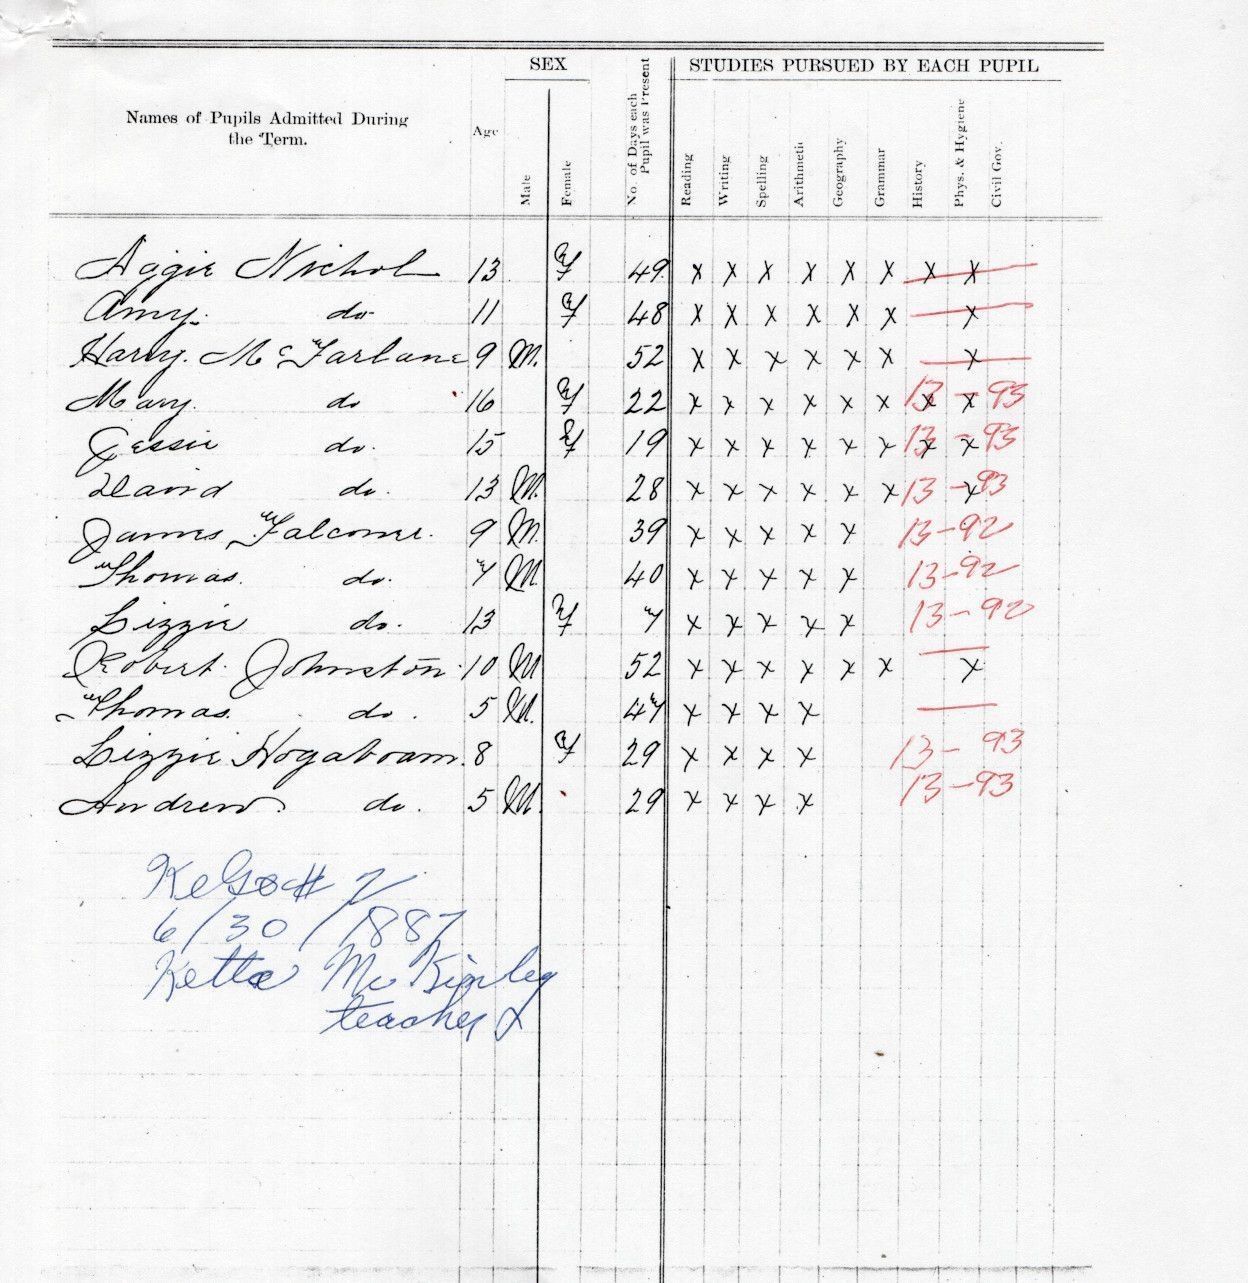 SEX STUDIES PURSUED BY EACH PUPIL
Names of Pupils Admitted During
the Term.
Age
Male
Female
No. of Days each
Pupil was Present
Reading
Writing
Spelling
Arithmetic
Geography
Grammar
History
Phys. & Hygiene
Civil Gov.
Aggie Nichol 13 F 49 x x x x x x x x
Amy. do 11 F 48 x x x x x x x
Harry. McFarlane 9 M. 52 x x x x x x x
Mary. do 16 F 22 x x x x x x x x 13 - 93
Jessie do. 15 F 19 x x x x x x x x 13 - 93
David do. 13 M. 28 x x x x x x x 13 - 93
James Falconer. 9 M. 39 x x x x x 13-92
Thomas. do. 7 M 40 x x x x x 13-92
Lizzie do. 13 F 7 x x x x x 13-92
Robert. Johnston. 10 M 52 x x x x x x x
Thomas. do. 5 M. 47 x x x x
Lizzie Hogaboam. 8 F 29 x x x x 13- 93
Andrew. do. 5 M. 29 x x x x 13-93
Kelso # 2
6/30/1887
Ketta McKinley
teacher